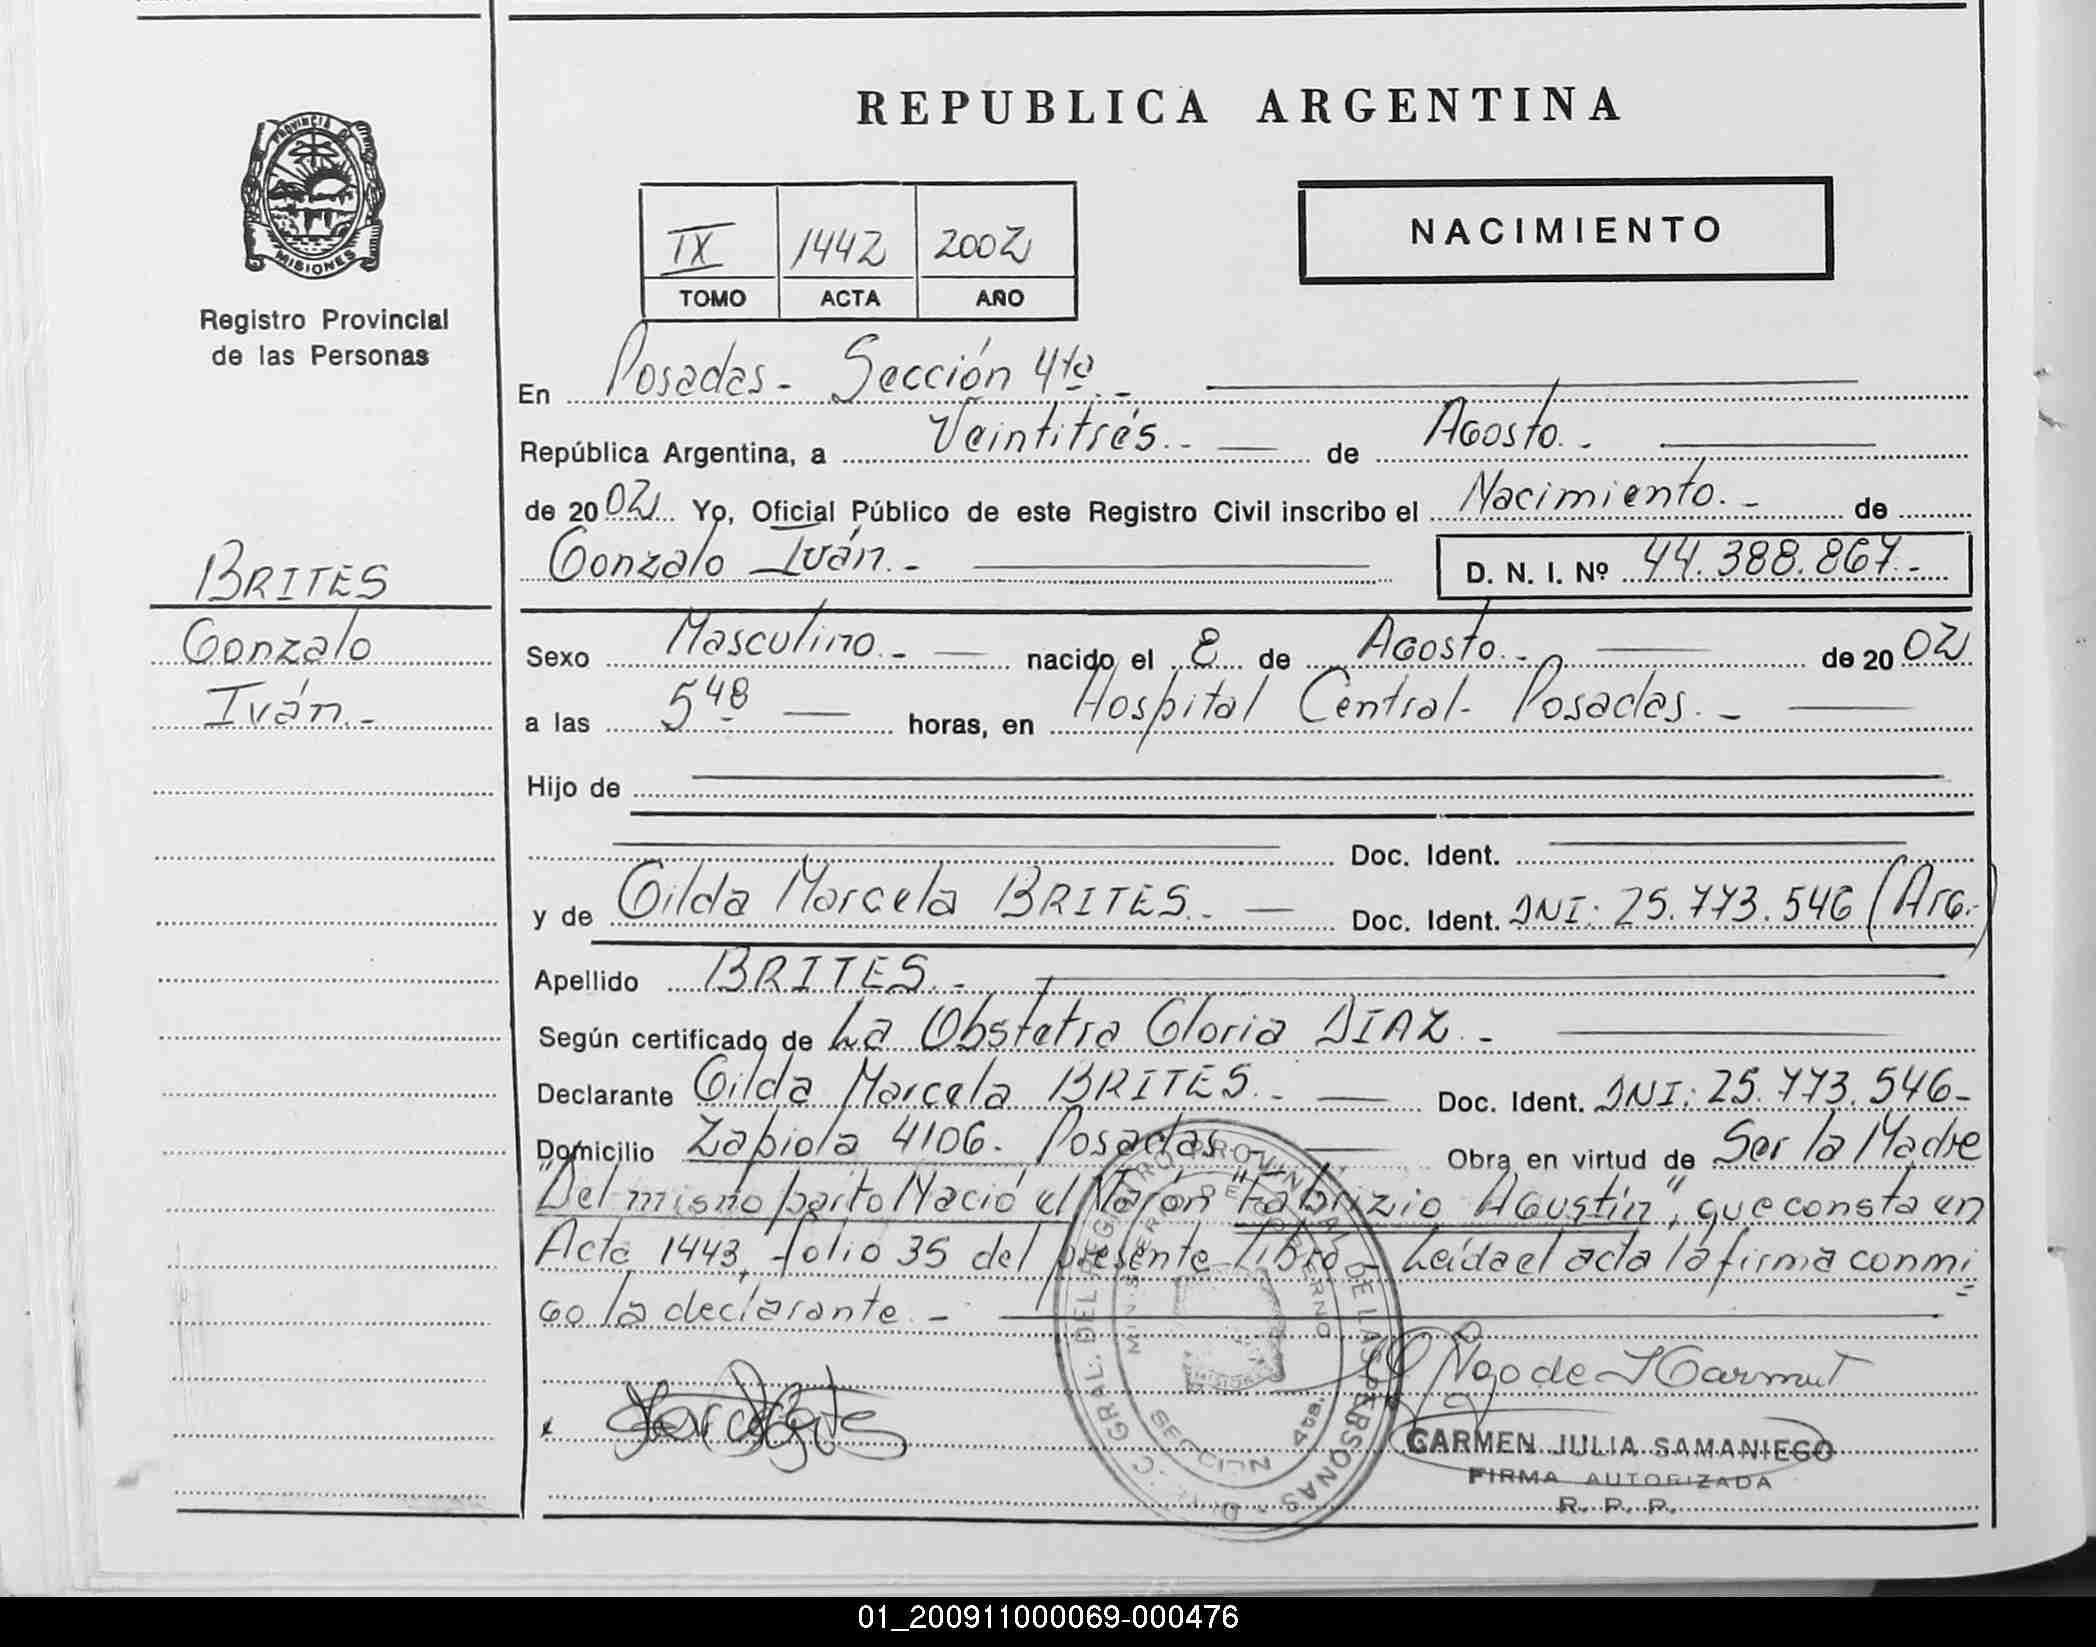 PROVINCIA DE
MISIONES
Registro Provincial
de las Personas
BRITES
Gonzalo
Iván.-
REPUBLICA ARGENTINA
IX 1442 2002
TOMO ACTA AÑO
NACIMIENTO
En Posadas- Sección 4ta.-
República Argentina, a Veintitrés.- de Agosto.-
de 2002 Yo, Oficial Público de este Registro Civil inscribo el Nacimiento.- de
Gonzalo Iván.- D. N. I. Nº 44.388.867.-
Sexo Masculino.- nacido el 8 de Agosto.- de 2002
a las 5 48 horas, en Hospital Central- Posadas.-
Hijo de
Doc. Ident.
y de Gilda Marcela BRITES.- Doc. Ident. DNI: 25.773.546 (Arg.-)
Apellido BRITES.-
Según certificado de La Obstetra Gloria DIAZ.-
Declarante Gilda Marcela BRITES.- Doc. Ident. DNI: 25.773.546-
Domicilio Zapiola 4106. Posadas.- Obra en virtud de Ser la Madre
"Del mismo parto Nació el Varón "Fabrizio Agustín", que consta en
Acta 1443, folio 35 del presente libro.- Leída el acta la firma conmi=
go la declarante.-
REGISTRO PROVINCIAL DE LAS PERSONAS
MINISTERIO DE GOBIERNO
SECCION 4ta.
CARMEN JULIA SAMANIEGO
FIRMA AUTORIZADA
R. P. P.
01_200911000069-000476